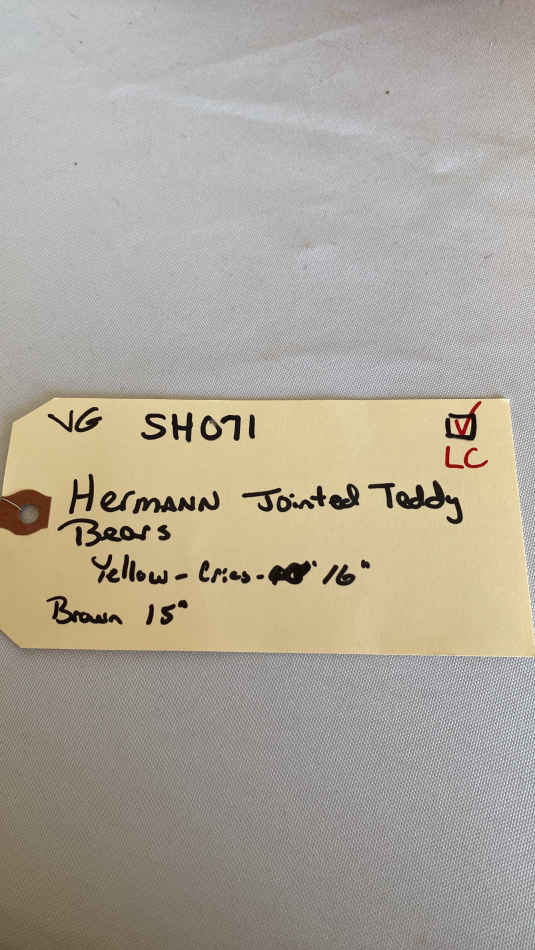 VG SH071
LC
Hermann Jointed Teddy
Bears
Yellow - Cries - 16"
Brown 15"